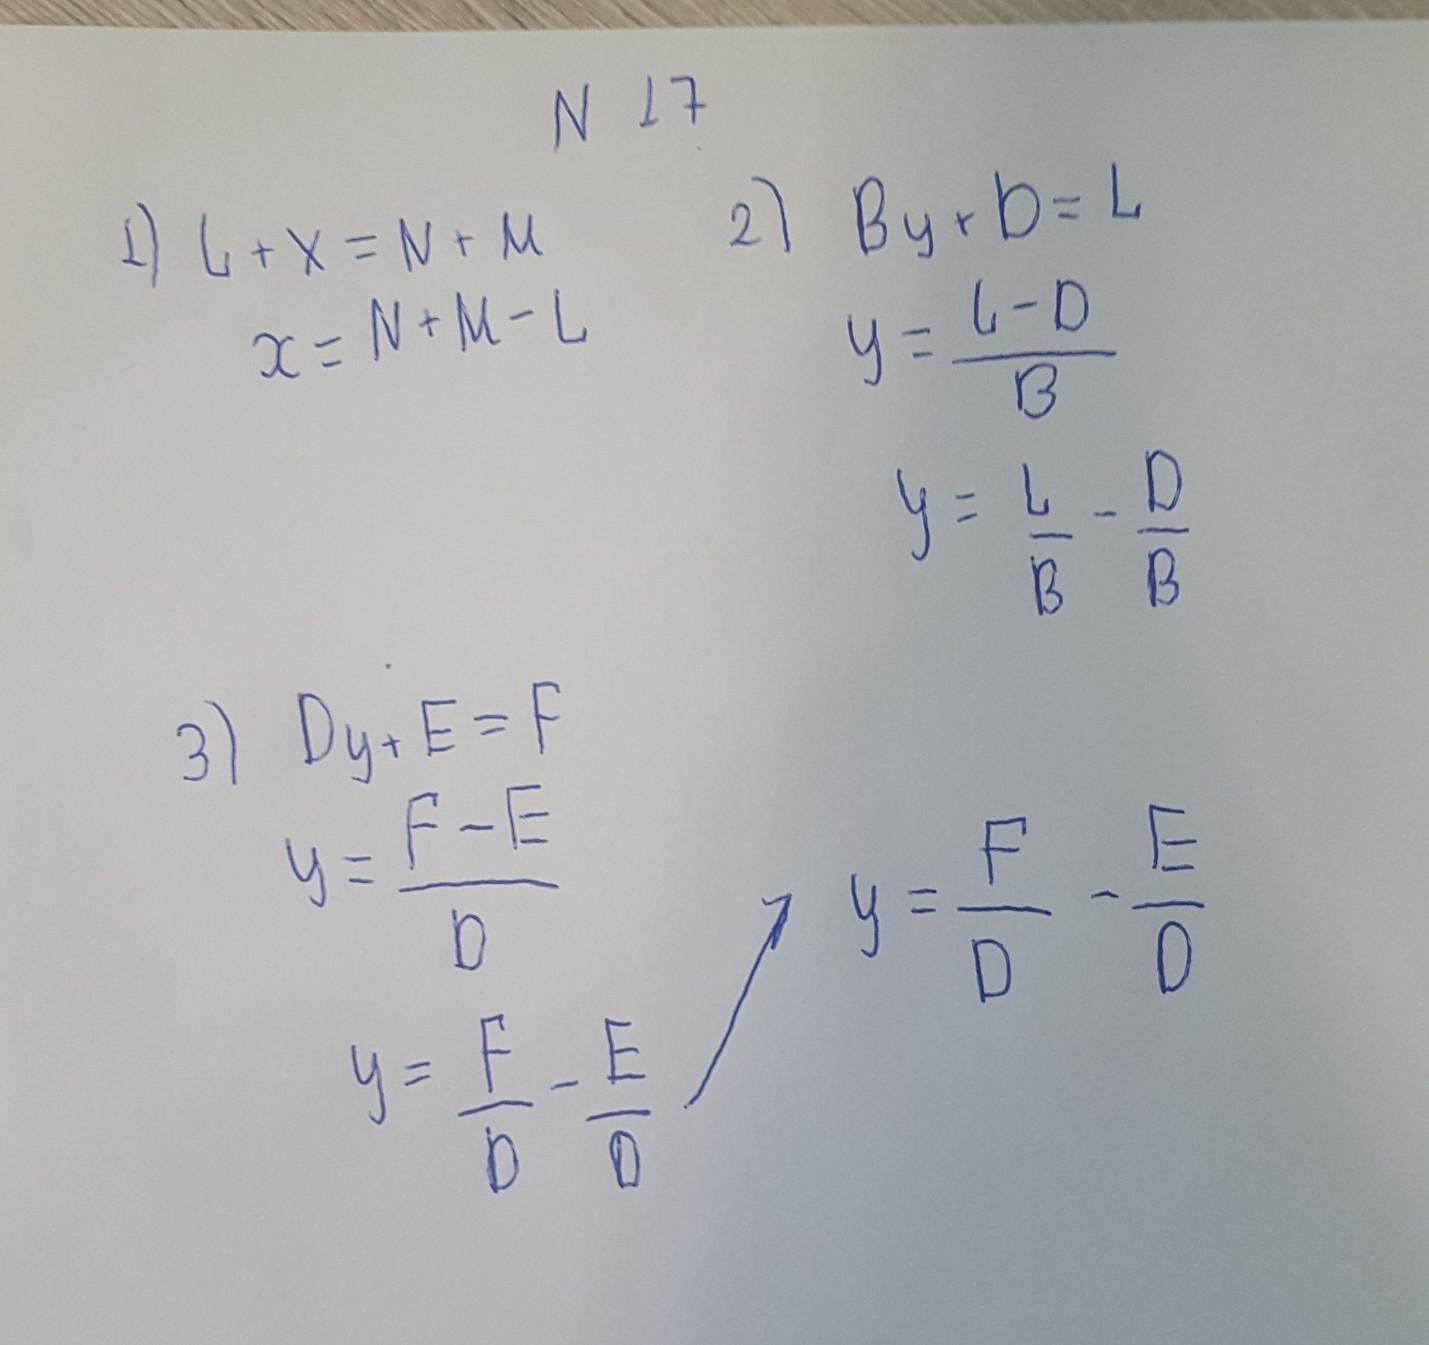 N 17
1) L + x = N + M
x = N + M - L
2) By + D = L
y = \frac{L - D}{B}
y = \frac{L}{B} - \frac{D}{B}
3) Dy + E = F
y = \frac{F - E}{D}
y = \frac{F}{D} - \frac{E}{D}
y = \frac{F}{D} - \frac{E}{D}